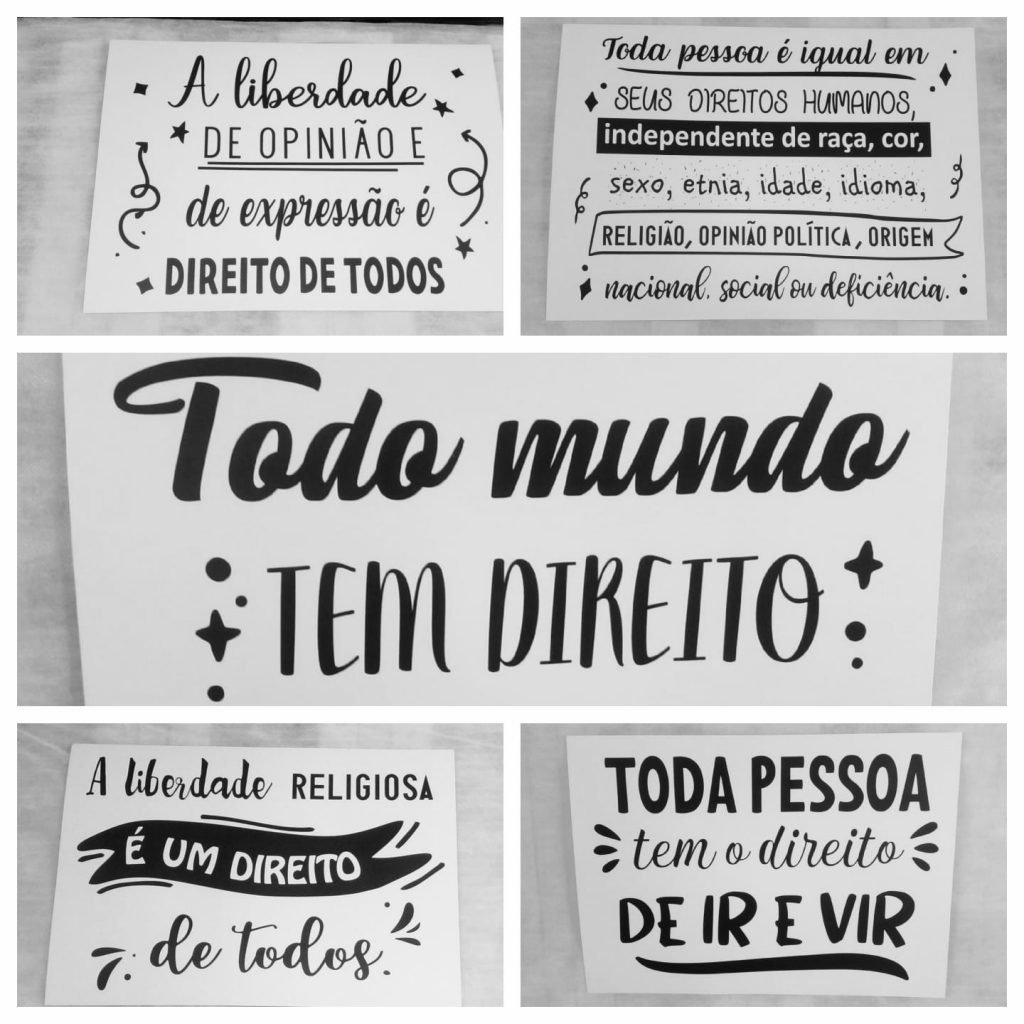 A liberdade
DE OPINIÃO E
de expressão é
DIREITO DE TODOS
Toda pessoa é igual em
SEUS DIREITOS HUMANOS,
independente de raça, cor,
sexo, etnia, idade, idioma,
RELIGIÃO, OPINIÃO POLÍTICA, ORIGEM
nacional, social ou deficiência.
Todo mundo
TEM DIREITO
A liberdade RELIGIOSA
É UM DIREITO
de todos.
TODA PESSOA
tem o direito
DE IR E VIR